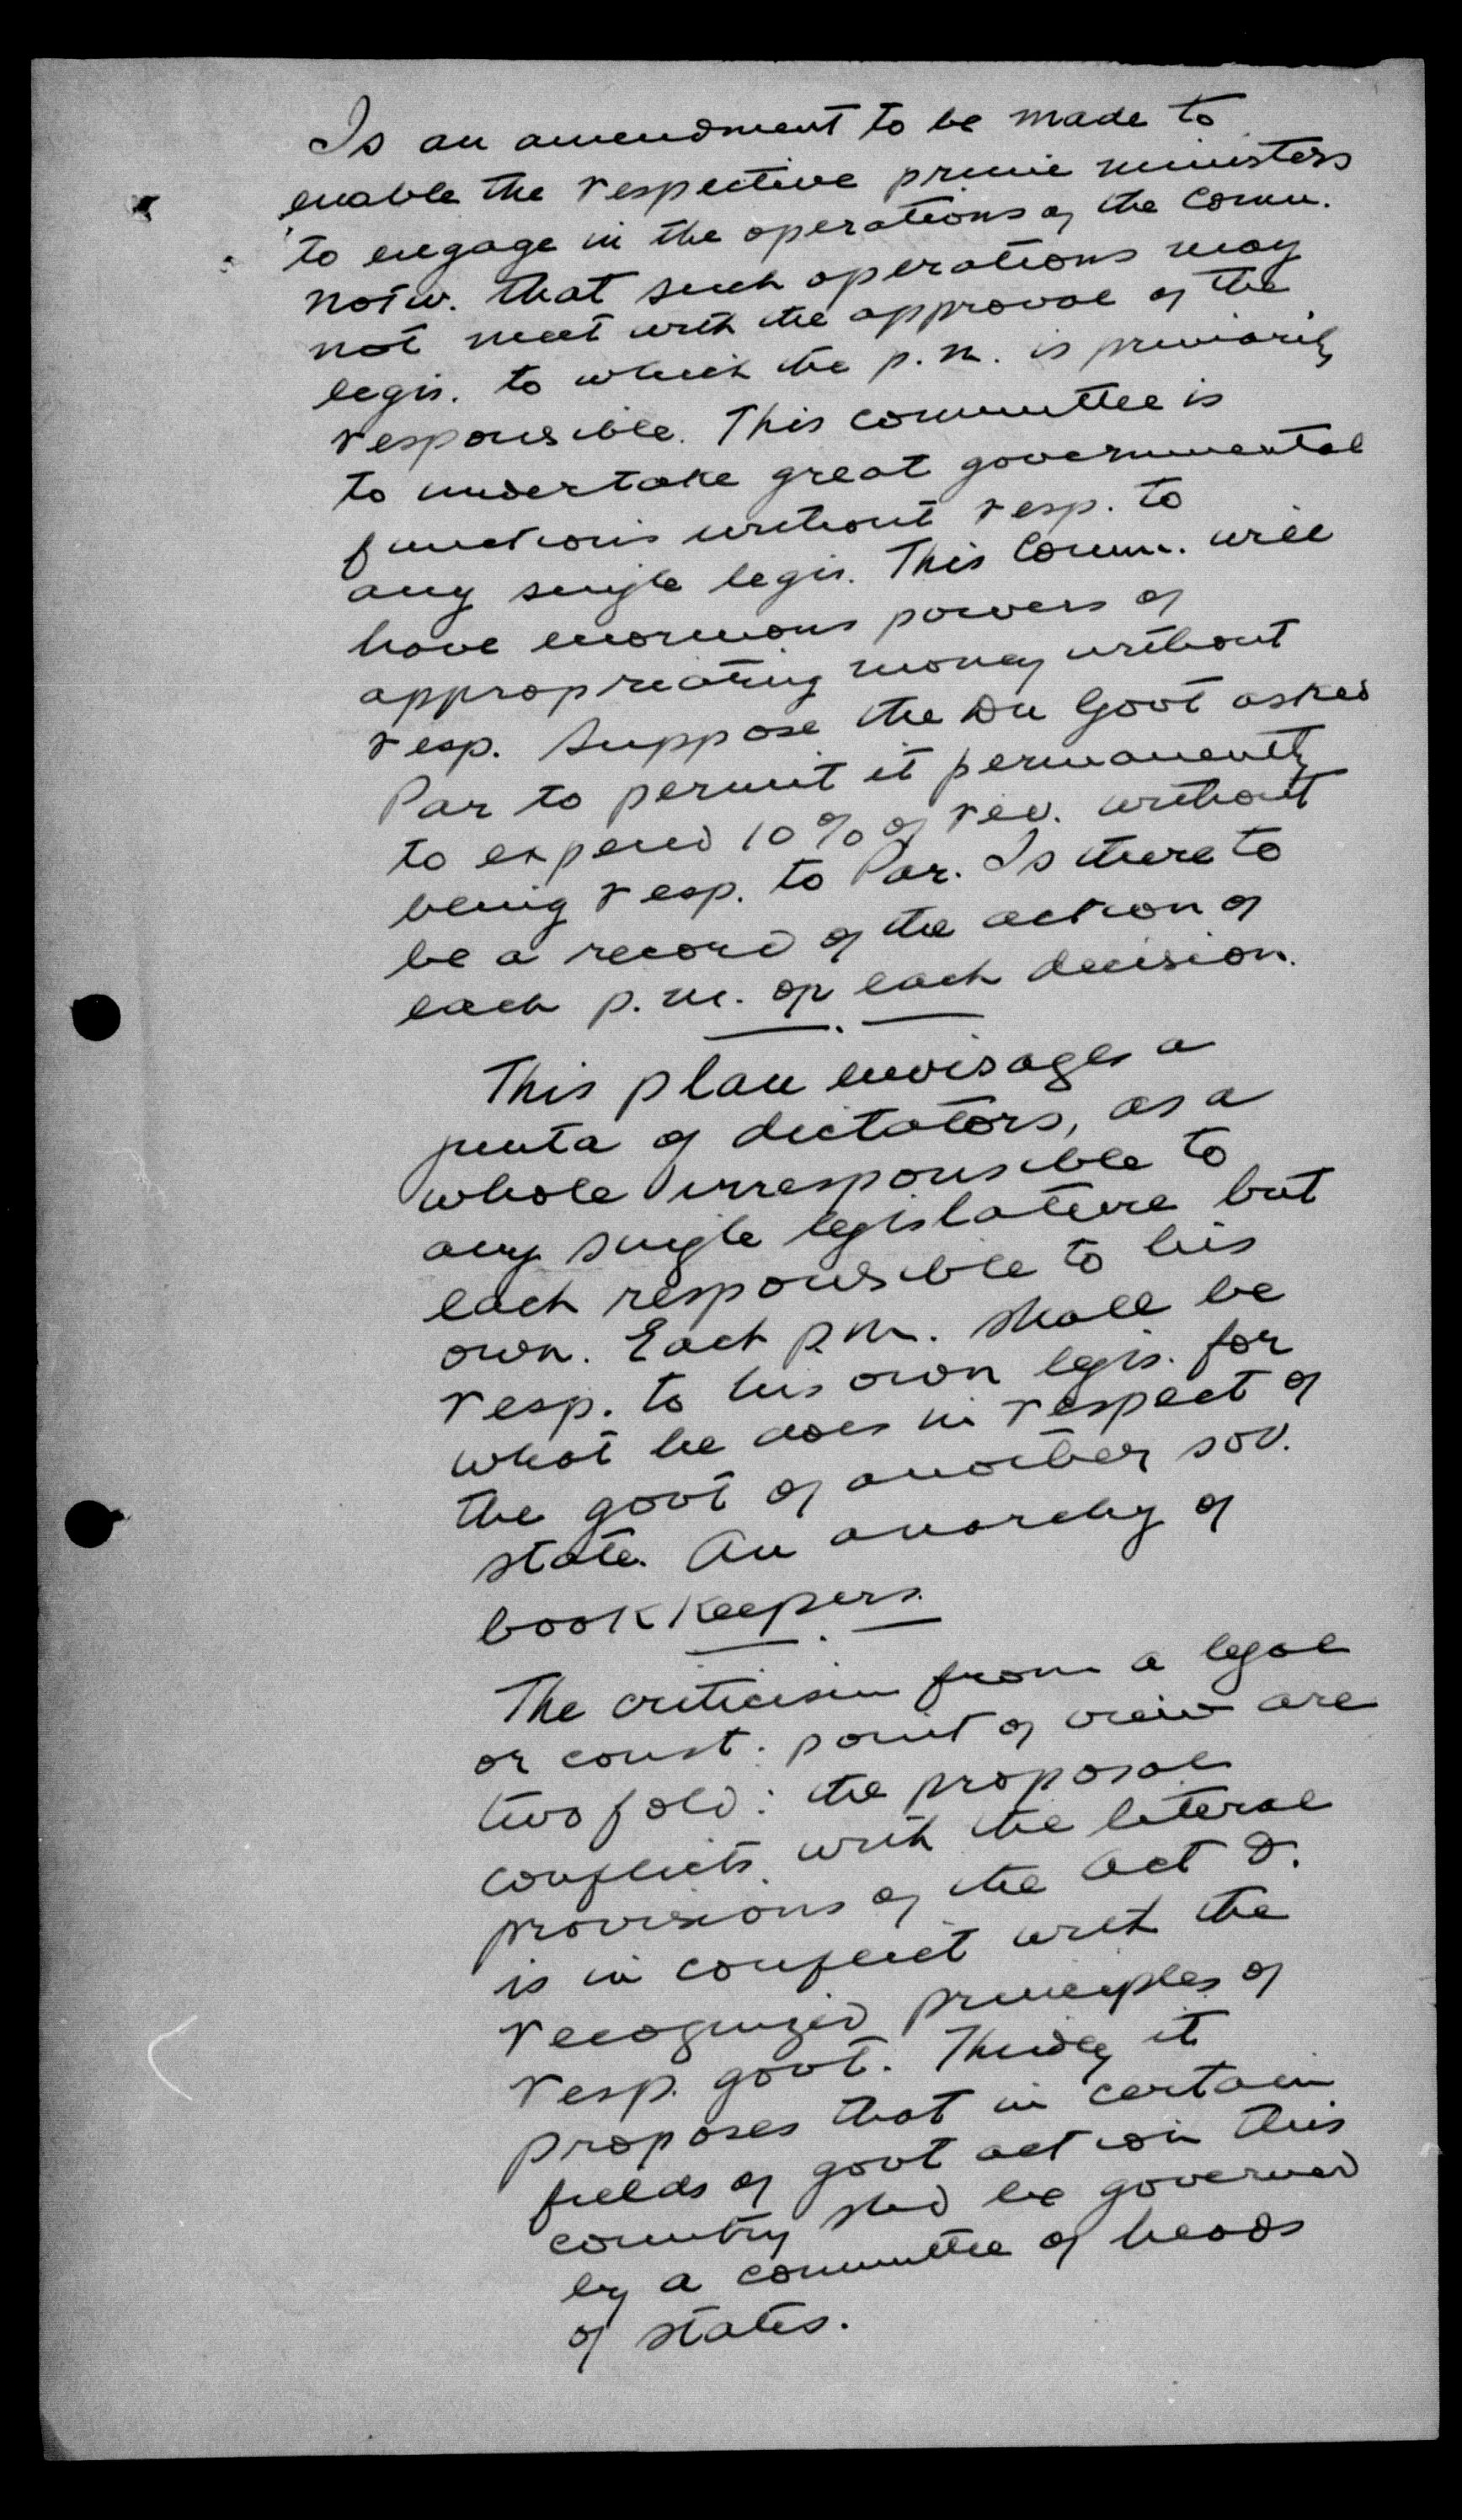 Is an amendment to be made to
enable the respective prime ministers
to engage in the operations of the Comm.
notw. that such operations may
not meet with the approval of the
legis. to which the p.m. is primarily
responsible. This committee is
to undertake great governmental
functions without resp. to
any single legis. This Comm. will
have enormous powers of
appropriating money without
resp. Suppose the Du Govt asked
Par to permit it permanently
to expend 10% of rev. without
being resp. to Par. Is there to
be a record of the action of
each p.m. on each decision.
This plan envisages a
junta of dictators, as a
whole irresponsible to
any single legislature but
each responsible to his
own. Each p.m. shall be
resp. to his own legis. for
what he does in respect of
the govt of another sov.
state. An anarchy of
book keepers.
The criticism from a legal
or const. point of view are
two fold: the proposal
conflicts with the literal
provisions of the act &
is in conflict with the
recognized principles of
resp. govt. Thirdly it
proposes that in certain
fields of govt action this
country shd be governed
by a committee of heads
of states.